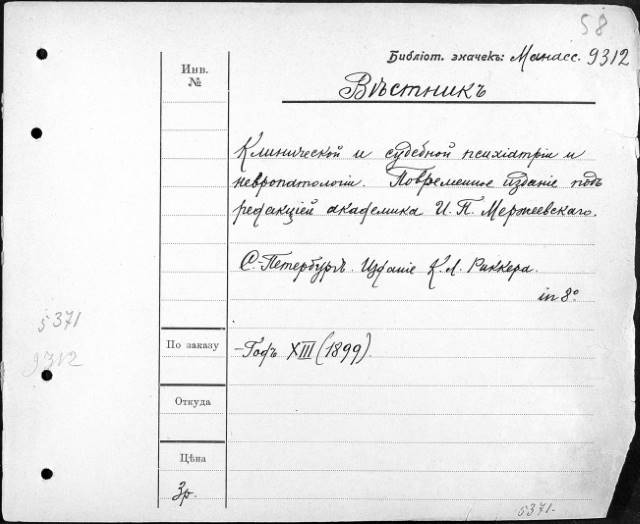 58
Библіот. значекъ: Манасс. 9312
Инв.
№
Вѣстникъ
Клинической и судебной психіатріи и
невропатологіи. Повременное изданіе подъ
редакціей академика И. П. Мержеевскаго.
С.-Петербургъ. Изданіе К. Л. Риккера.
in 8°
5371
9312
По заказу
-Годъ XIII (1899).
Откуда
Цѣна
3р.
5371.